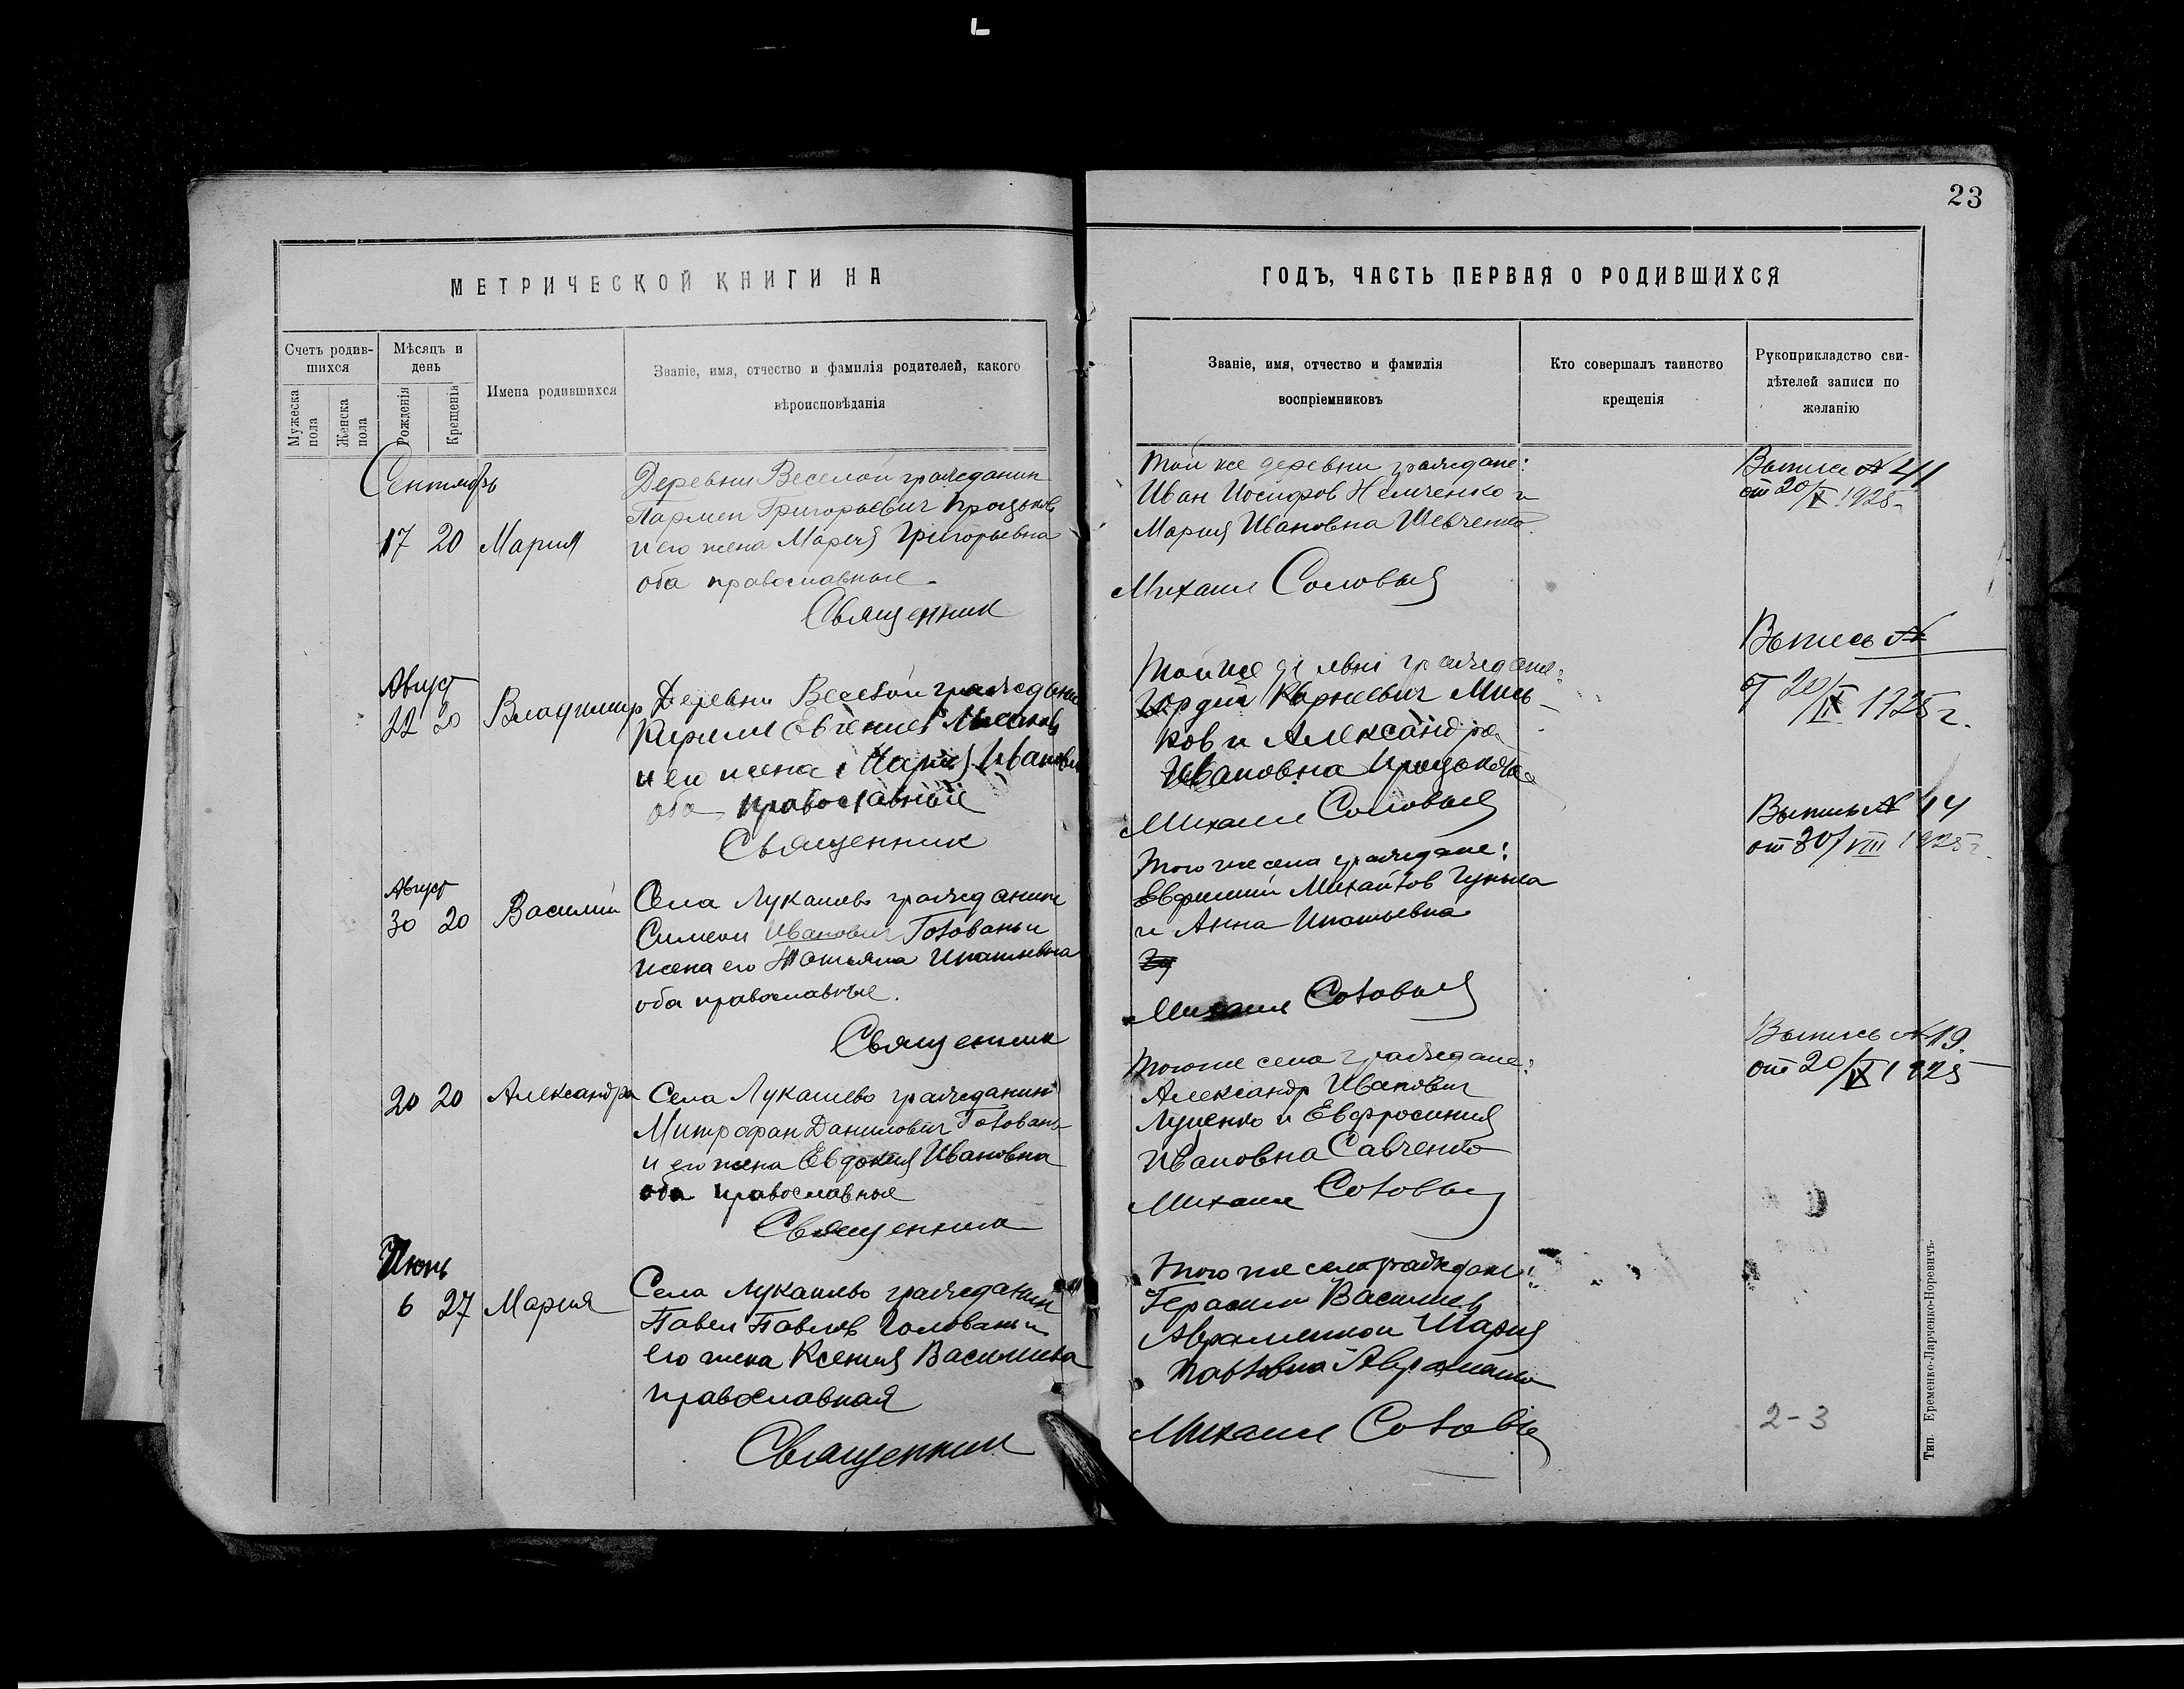 23
МЕТРИЧЕСКОЙ КНИГИ НА
ГОДЪ, ЧАСТЬ ПЕРВАЯ О РОДИВШИХСЯ
Счетъ родив-
шихся
Мужеска
пола
Женска
пола
Мѣсяцъ и
день
Рожденія
Крещенія
Имена родившихся
Званіе, имя, отчество и фамилія родителей, какого
вѣроисповѣданія
Званіе, имя, отчество и фамилія
воспріемниковъ
Кто совершалъ таинство
крещенія
Рукоприкладство сви-
дѣтелей записи по
желанію
Сентябрь
17 20 Мария
Деревни Веселой гражданин
Пармен Григорьевич
и его жена Мария Григорьевна
оба православные.
Священник
Той же деревни граждане:
Иван Иосифов Немченко и
Мария Ивановна Шевченко.
Михаил Соловый
от 20/IX 1925
Август
22 20 Владимир
Деревни Веселой
Кирилл Евгениев
и его жена Мария
оба православные
Священник
Той же граждане:
Гордий Корнеевич Мись-
ков и Александра
Ивановна
Михаил Соловый
Выпись №
1925 г.
Август
30 20 Василий
Села Лукашево гражданин
Симеон Иванович Головань и
жена его Татьяна Ипатьевна
оба православные.
Священник
Того же села граждане:
Евфимий Михайлов
и Анна Ипатьевна
Михаил Соловый
Выпись №
от 30/VIII 1925 г.
20 20 Александра
Села Лукашево гражданин
Митрофан Данилович Головань
и его жена Евдокия Ивановна
оба православные
Священник
Того же села граждане:
Александр Иванович
Луценко и Евфросиния
Ивановна Савченко
Михаил Соловый
Выпись № 19
от 20/IX 1925
Июнь
6 27 Мария
Села Лукашево гражданин
Павел Павлов Головань и
его жена Ксения
православная
Священник
Того же села граждане:
Герасим
Мария
Павловна
Михаил Соловый
2-3
Тип. Еременко-Ларченко-Норевичъ.